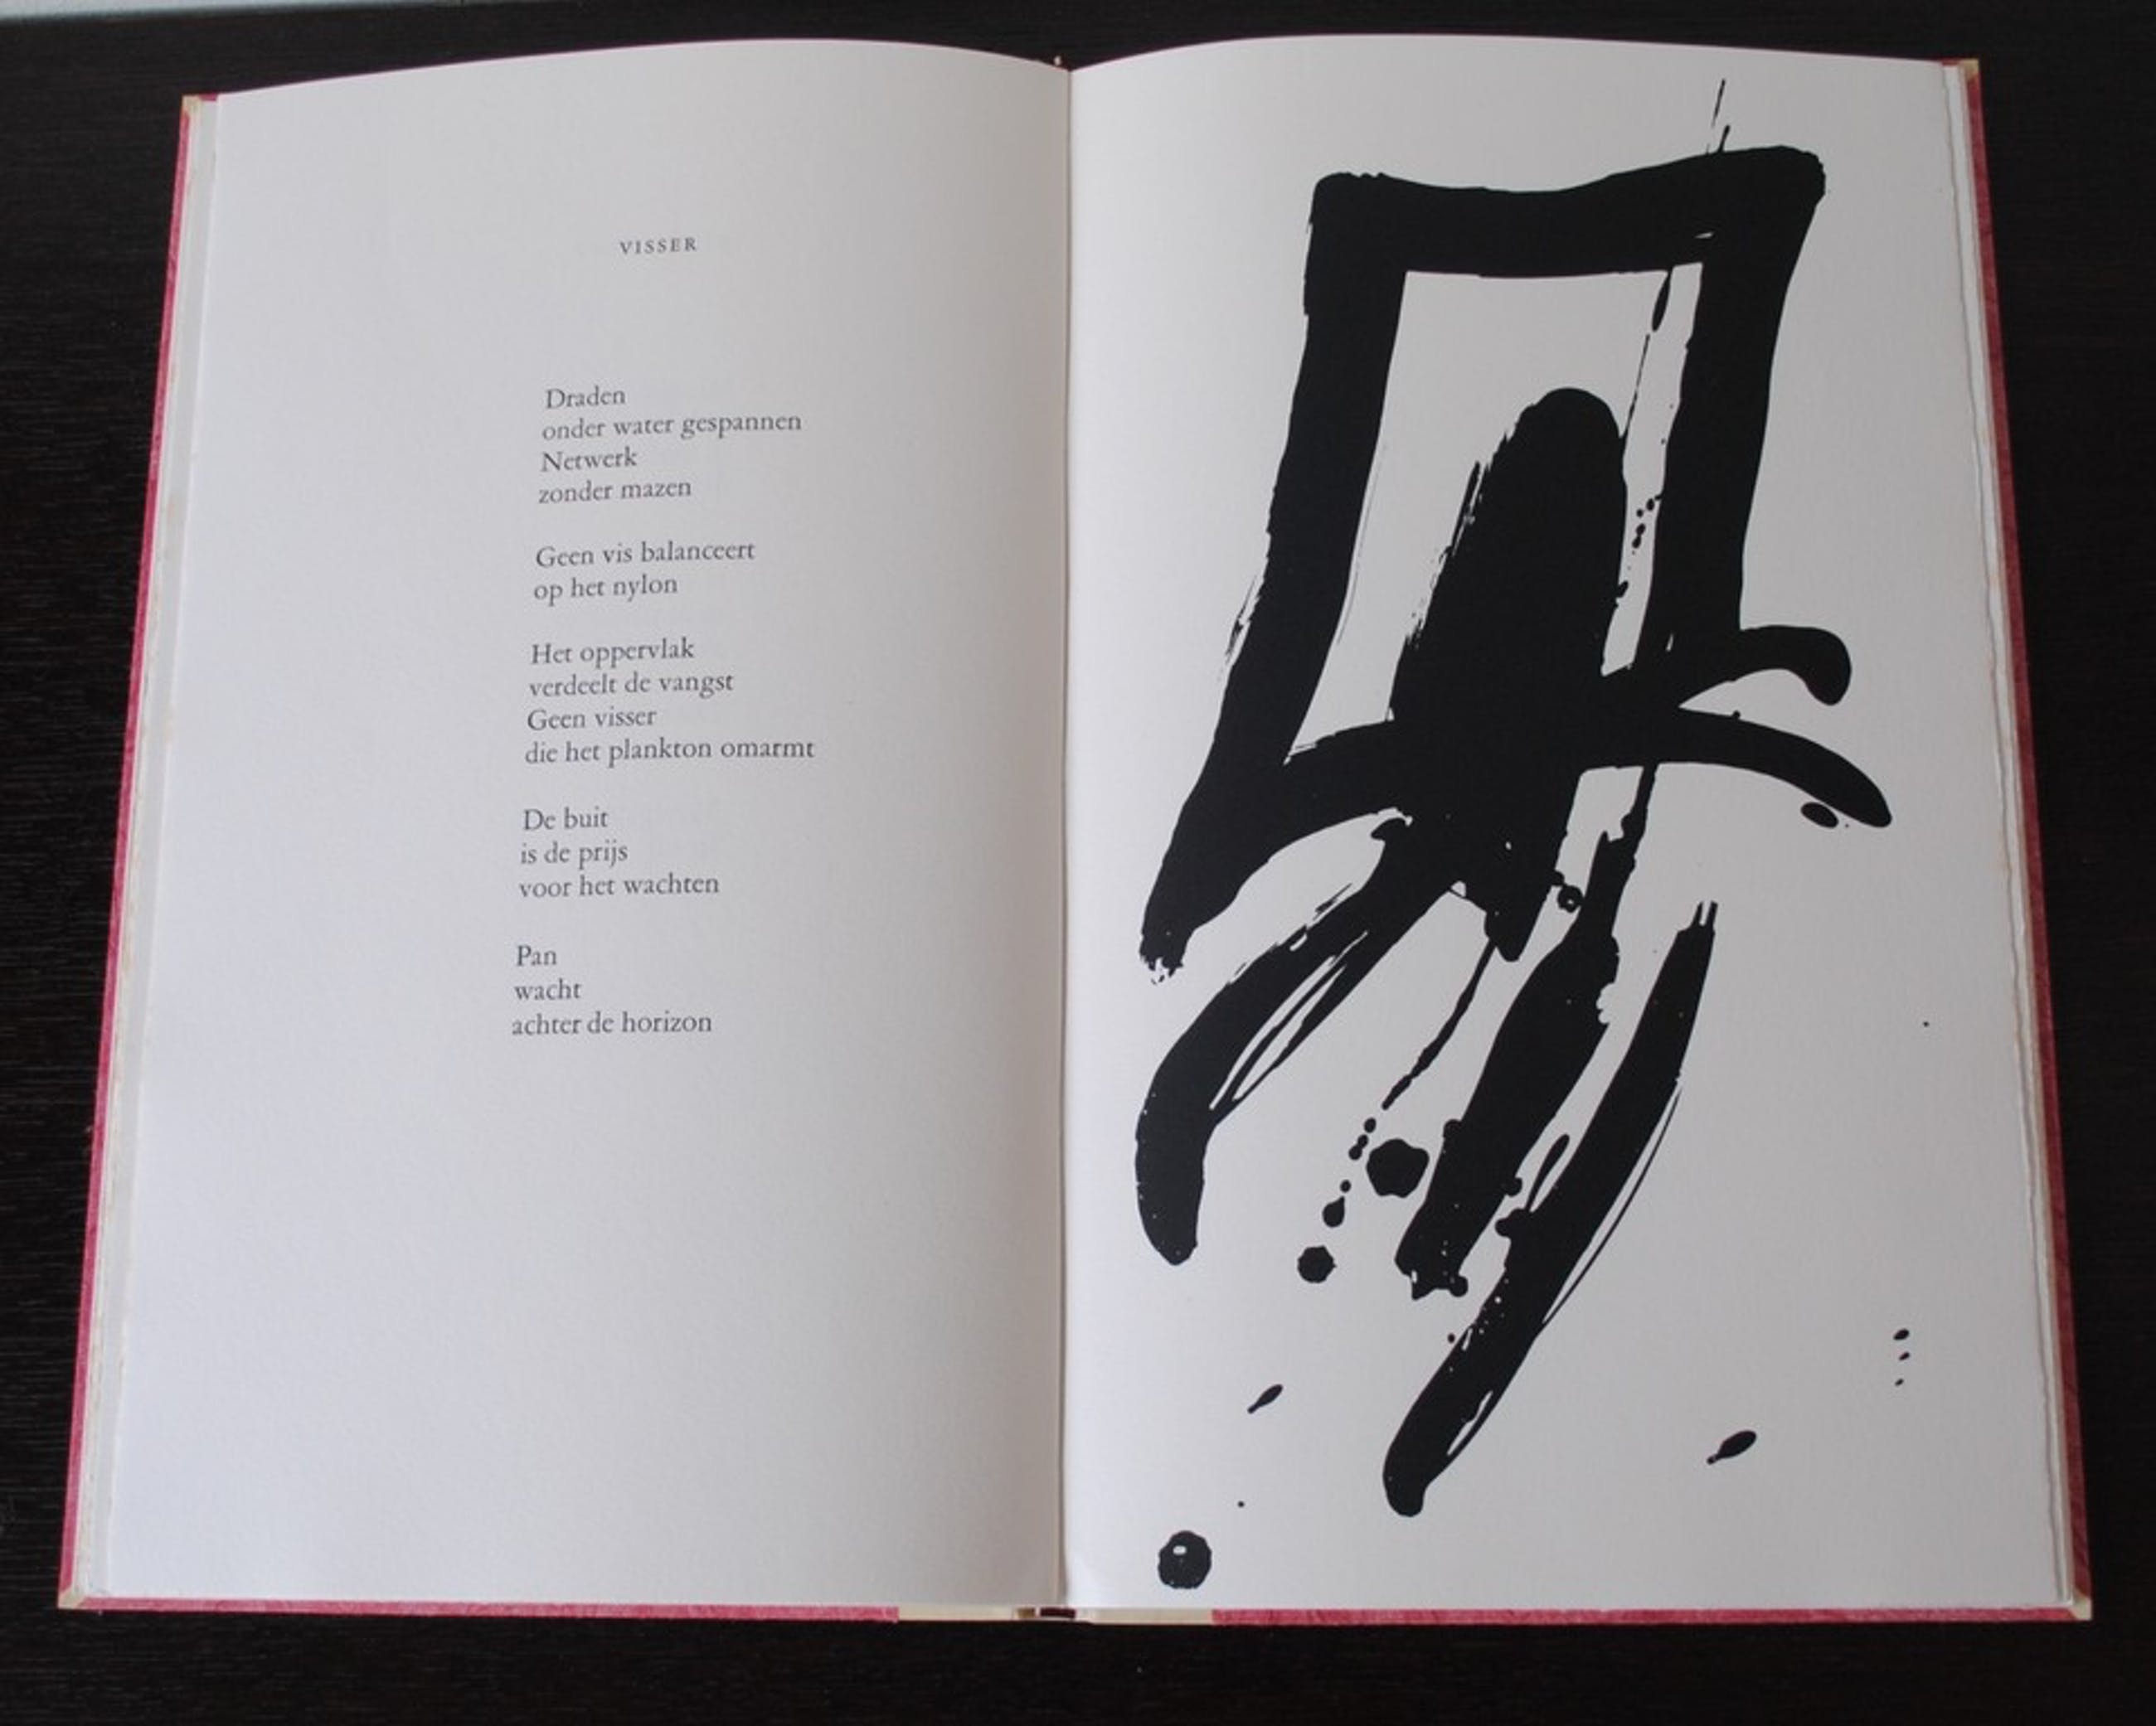 VISSER
Draden
onder water gespannen
Netwerk
zonder mazen
Geen vis balanceert
op het nylon
Het oppervlak
verdeelt de vangst
Geen visser
die het plankton omarmt
De buit
is de prijs
voor het wachten
Pan
wacht
achter de horizon